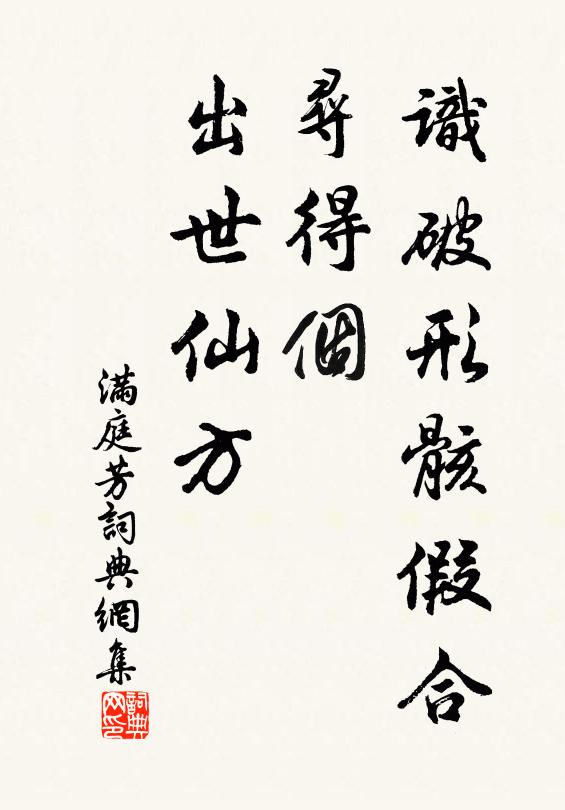 識破形骸假合
尋得個
出世仙方
滿庭芳詞典網集
詞典网印